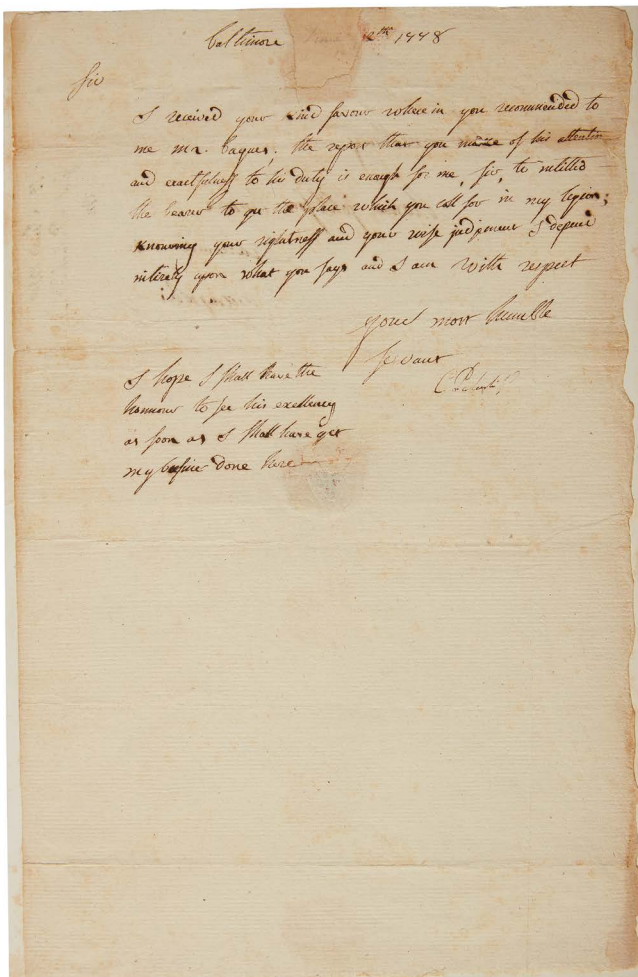 Baltimore June 12th 1778
Sir
I received your kind favour where in you recommended to
me mr. Jaques. the report that you made of his attention
and exactfulness to his duty is enough for me, Sir, to intitled
the bearer to the place which you call for in my legion;
Knowing your rightness and your wise judgement I depend
intirely upon what you says and I am with respect
your most humble
servant
C Pulaski
I hope I shall have the
honnour to see his exellency
as soon as I shall have get
my busine done here